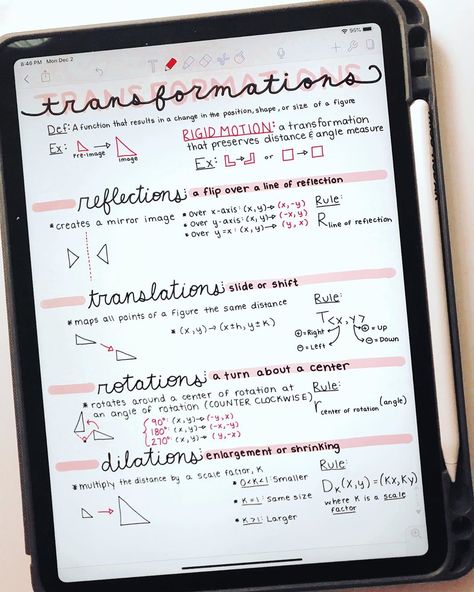 8:46 PM Mon Dec 2
95%
TRANSFORMATIONS
transformations
Def: A function that results in a change in the position, shape, or size of a figure
Ex:
Pre-image
Image
RIGID MOTION: a transformation
that preserves distance & angle measure
Ex: or
reflections: a flip over a line of reflection
* creates a mirror image
* Over x-axis: (x,y)→ (x,-y)
* Over y-axis: (x,y)→ (-x,y)
* Over y=x: (x,y)→ (y,x)
Rule:
R line of reflection
translations: slide or shift
* maps all points of a figure the same distance
* (x,y) → (x±h, y±k)
Rule:
T<x,y>
⊕=Right
⊖=Left
⊕=Up
⊖=Down
rotations: a turn about a center
* rotates around a center of rotation at
an angle of rotation (COUNTER CLOCKWISE)
90°: (x,y)→ (-y,x)
180°: (x,y)→ (-x,-y)
270°: (x,y)→ (y,-x)
Rule:
r center of rotation (angle)
dilations: enlargement or shrinking
* multiply the distance by a scale factor, K
* 0<K<1: Smaller
* K=1: Same size
* K>1: Larger
Rule:
DK(x,y)=(Kx,Ky)
where K is a scale
factor